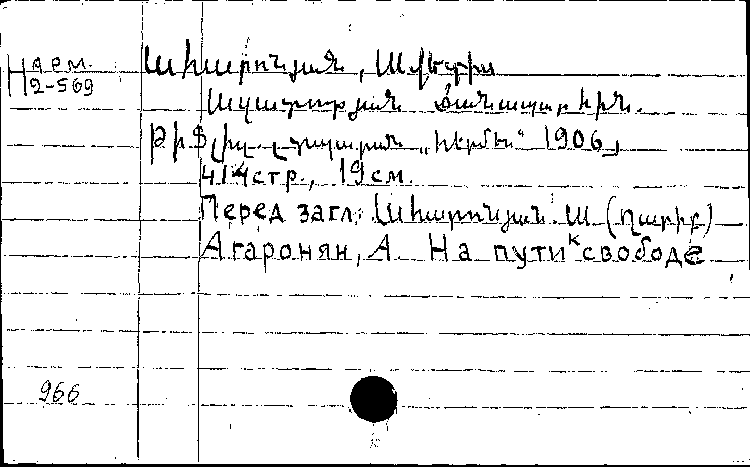 Н арм.
2-569
Ահարոնյան, Ավետիս
Ազատության ճանապարհին.
Թիֆլիս, տպարան „Հերմես“ 1906,
414 стр., 19 см.
Перед загл: Ահարոնյան Ա. (Ղարիբ)
Агаронян, А. На пути к свободе
966